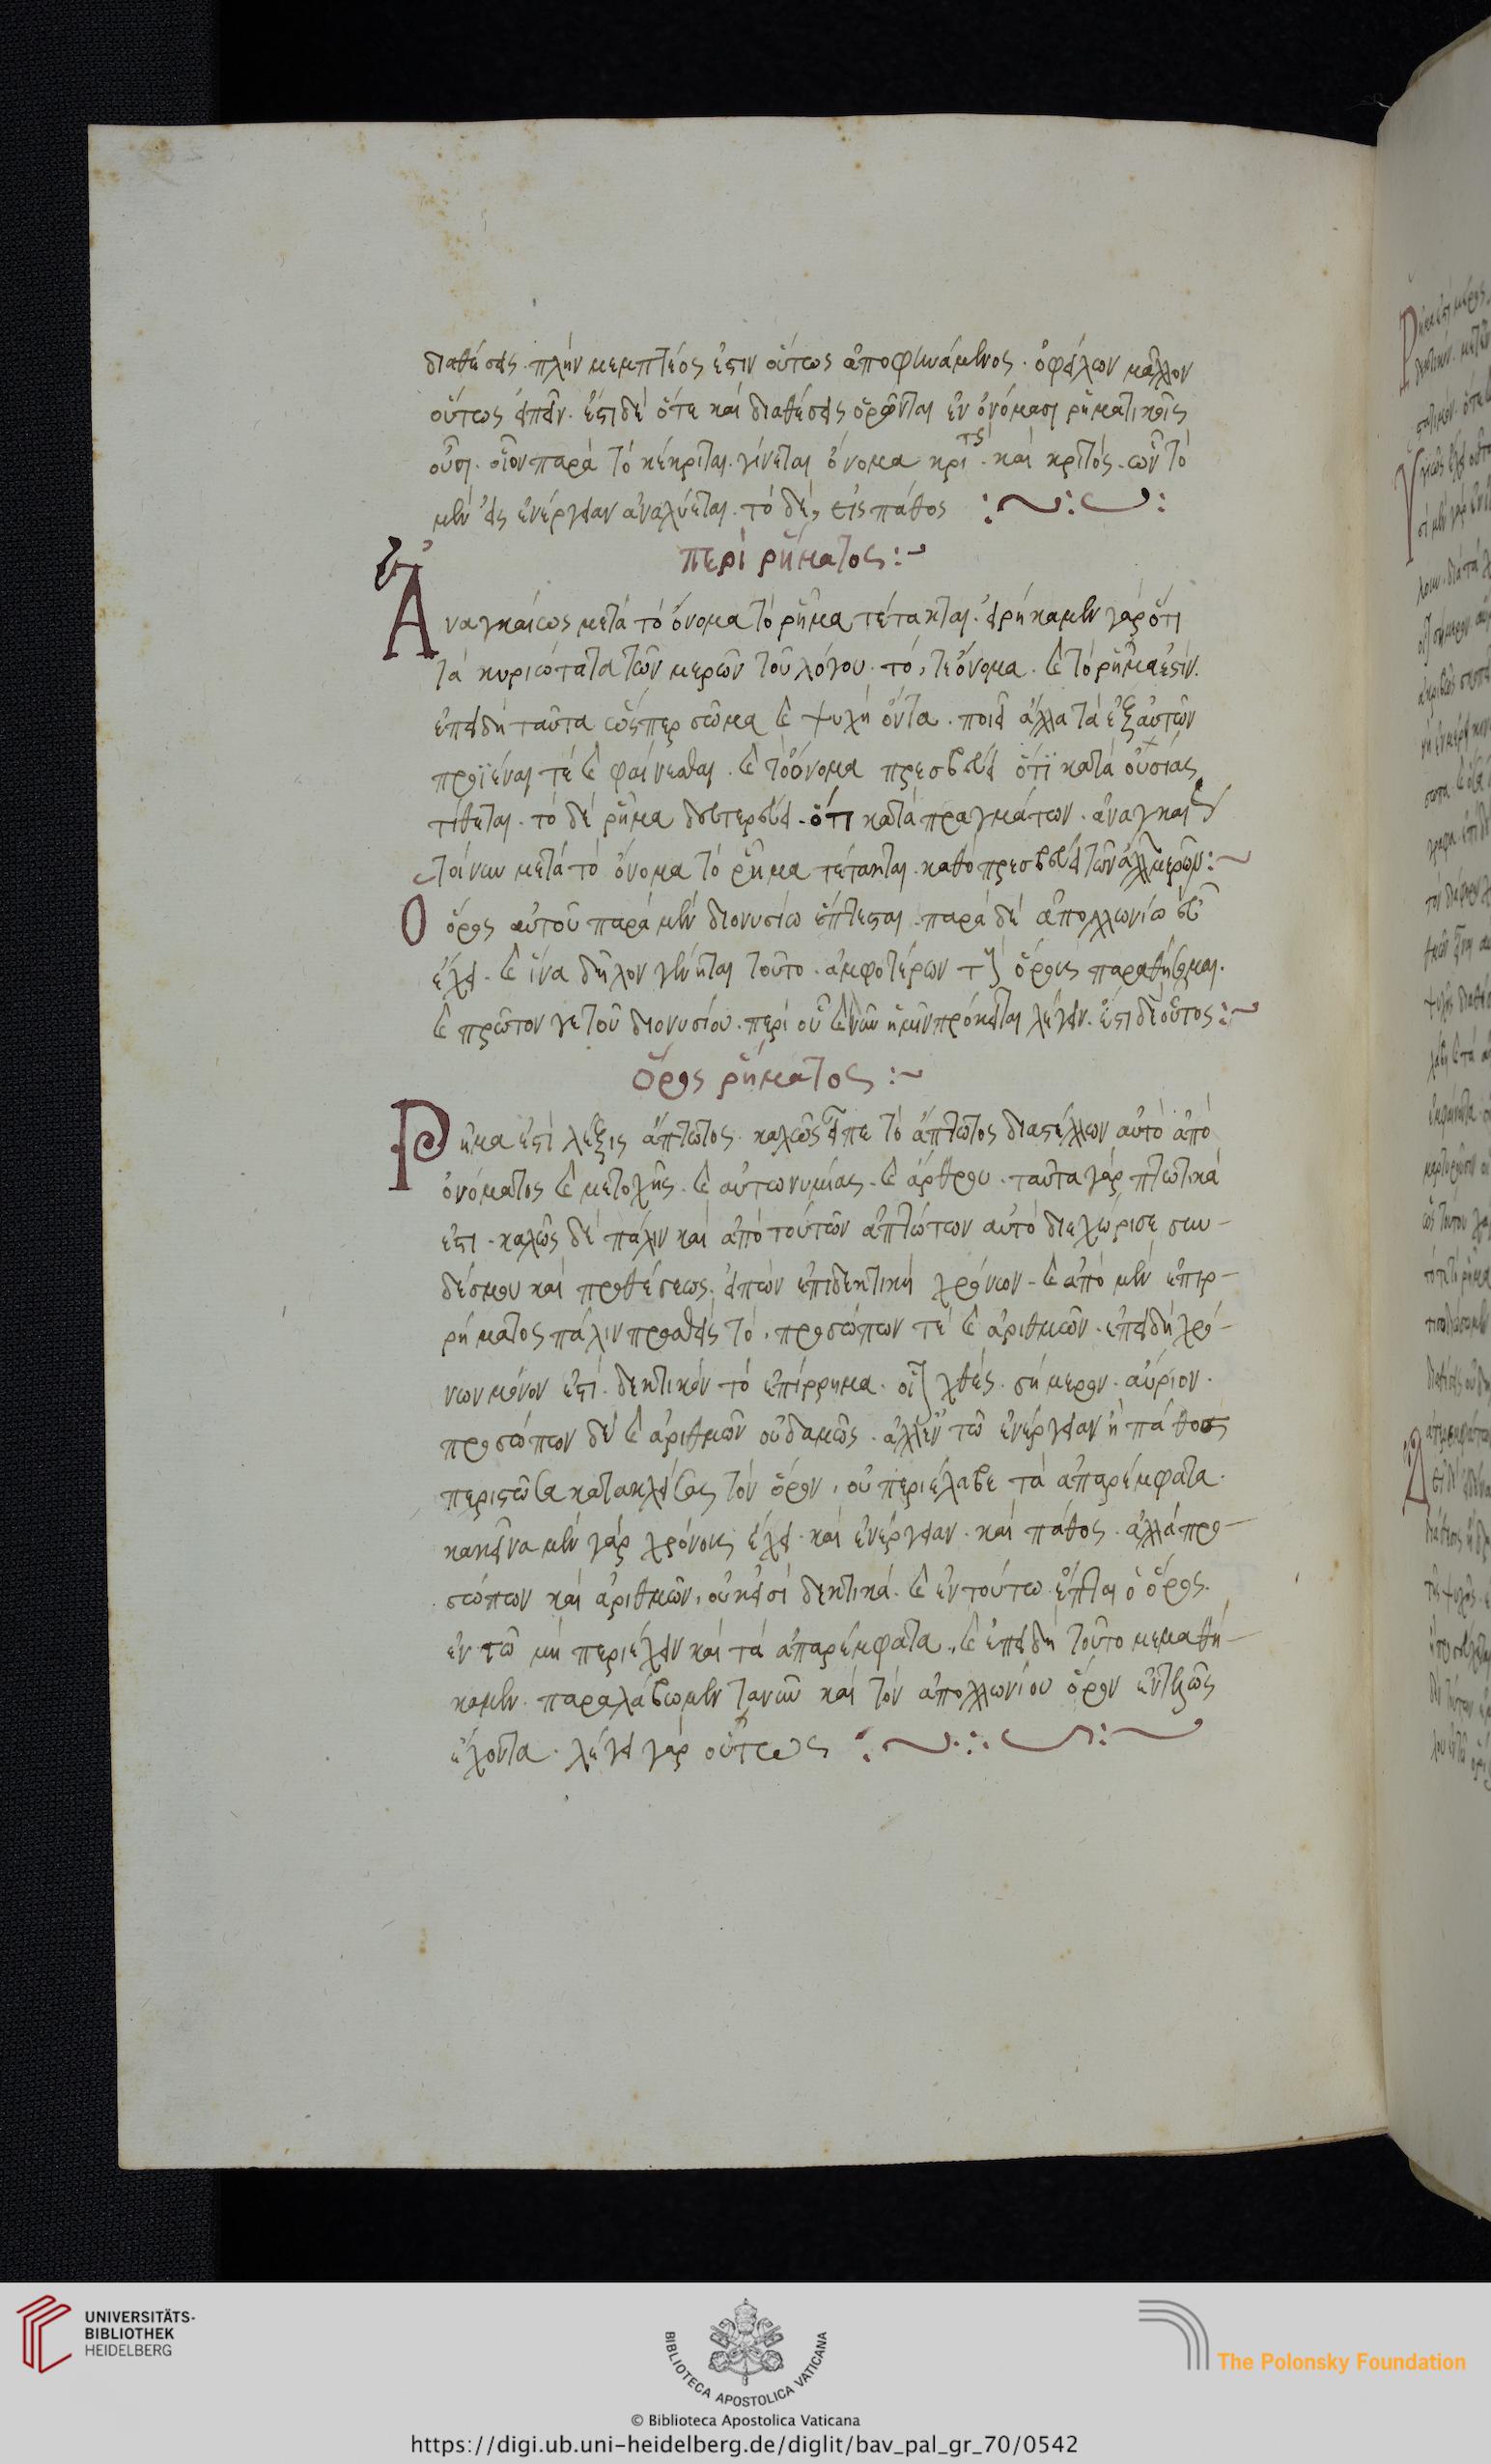 διαθέσεις. πλὴν μεμπτέος ἐστὶν οὕτως ἀποφηνάμενος. ὀφείλων μᾶλλον
οὕτως εἰπεῖν. ἔστι δὲ ὅτε καὶ διαθέσεις ὁρῶνται ἐν ὀνόμασι ῥηματικοῖς
οὖσι. οἷον παρὰ τὸ κέκριται. γίνεται ὄνομα κριτής. καὶ κριτός. ὧν τὸ
μὲν εἰς ἐνέργειαν ἀναλύεται. τὸ δέ, εἰς πάθος :~:
περὶ ῥήματος :~
Ἀναγκαίως μετὰ τὸ ὄνομα τὸ ῥῆμα τέτακται. εἰρήκαμεν γὰρ ὅτι
τὰ κυριώτατα τῶν μερῶν τοῦ λόγου. τό, τε ὄνομα. καὶ τὸ ῥῆμα ἐστίν.
ἐπειδὴ ταῦτα ὥσπερ σῶμα καὶ ψυχὴ ὄντα. ποιεῖ ἄλλα τὰ ἐξ αὐτῶν
προϊέναι τὲ καὶ φαίνεσθαι. καὶ τὸ ὄνομα πρεσβεύει ὅτι κατὰ οὐσίας
τίθεται. τὸ δὲ ῥῆμα δευτερεύει. ὅτι κατὰ πραγμάτων. ἀναγκαίως
τοίνυν μετὰ τὸ ὄνομα τὸ ῥῆμα τέτακται. καθὸ πρεσβεύει τῶν ἄλλων μερῶν :~
Ὁ ὅρος αὐτοῦ παρὰ μὲν διονυσίω ἔπταισται. παρὰ δὲ ἀπολλωνίω εὖ
ἔχει. καὶ ἵνα δῆλον γένηται τοῦτο. ἀμφοτέρων τοὺς ὅρους παραθήσομαι.
καὶ πρῶτον γε τοῦ διονυσίου. περὶ οὗ καὶ νῦν ἡμῖν πρόκειται λέγειν. ἔστι δὲ οὗτος :~
ὅρος ῥήματος :~
Ῥῆμα ἐστὶ λέξις ἄπτωτος. καλῶς εἶπε τὸ ἄπτωτος διαστέλλων αὐτὸ ἀπὸ
ὀνόματος καὶ μετοχῆς. καὶ αὐτωνυμίας. καὶ ἄρθρου. ταῦτα γὰρ πτωτικά
ἐστι. καλῶς δὲ πάλιν καὶ ἀπὸ τούτων ἀπτώτων αὐτὸ διεχώρισε συν-
δέσμου καὶ προθέσεως. εἰπὼν ἐπιδεκτικὴ χρόνων. καὶ ἀπὸ μὲν ἐπιρ-
ρήματος πάλιν προσθεὶς τό, προσώπων τὲ καὶ ἀριθμῶν. ἐπειδὴ χρό-
νων μόνον ἐστὶ. δεκτικὸν τὸ ἐπίρρημα. οἷον χθές. σήμερον. αὔριον.
προσώπων δὲ καὶ ἀριθμῶν οὐδαμῶς. ἀλλ' ἐν τῶ ἐνέργειαν ἢ πάθος
παριστῶσα κατακλείσας τὸν ὅρον, οὐ περιέλαβε τὰ ἀπαρέμφατα.
κακεῖνα μὲν γὰρ χρόνους ἔχει. καὶ ἐνέργειαν. καὶ πάθος. ἀλλὰ προ-
σώπων καὶ ἀριθμῶν, οὐκ εἰσὶ δεκτικά. καὶ ἐν τούτω ἔπται ὁ ὅρος.
ἐν τῶ μὴ περιέχειν καὶ τὰ ἀπαρέμφατα. καὶ ἐπειδὴ τοῦτο μεμαθή-
καμεν. παραλάβωμεν τανῦν καὶ τὸν ἀπολλωνίου ὅρον ἐντελῶς
ἔχοντα. λέγει γὰρ οὕτως :~:~:~
UNIVERSITÄTS-
BIBLIOTHEK
HEIDELBERG
BIBLIOTECA APOSTOLICA VATICANA
The Polonsky Foundation
© Biblioteca Apostolica Vaticana
https://digi.ub.uni-heidelberg.de/diglit/bav_pal_gr_70/0542